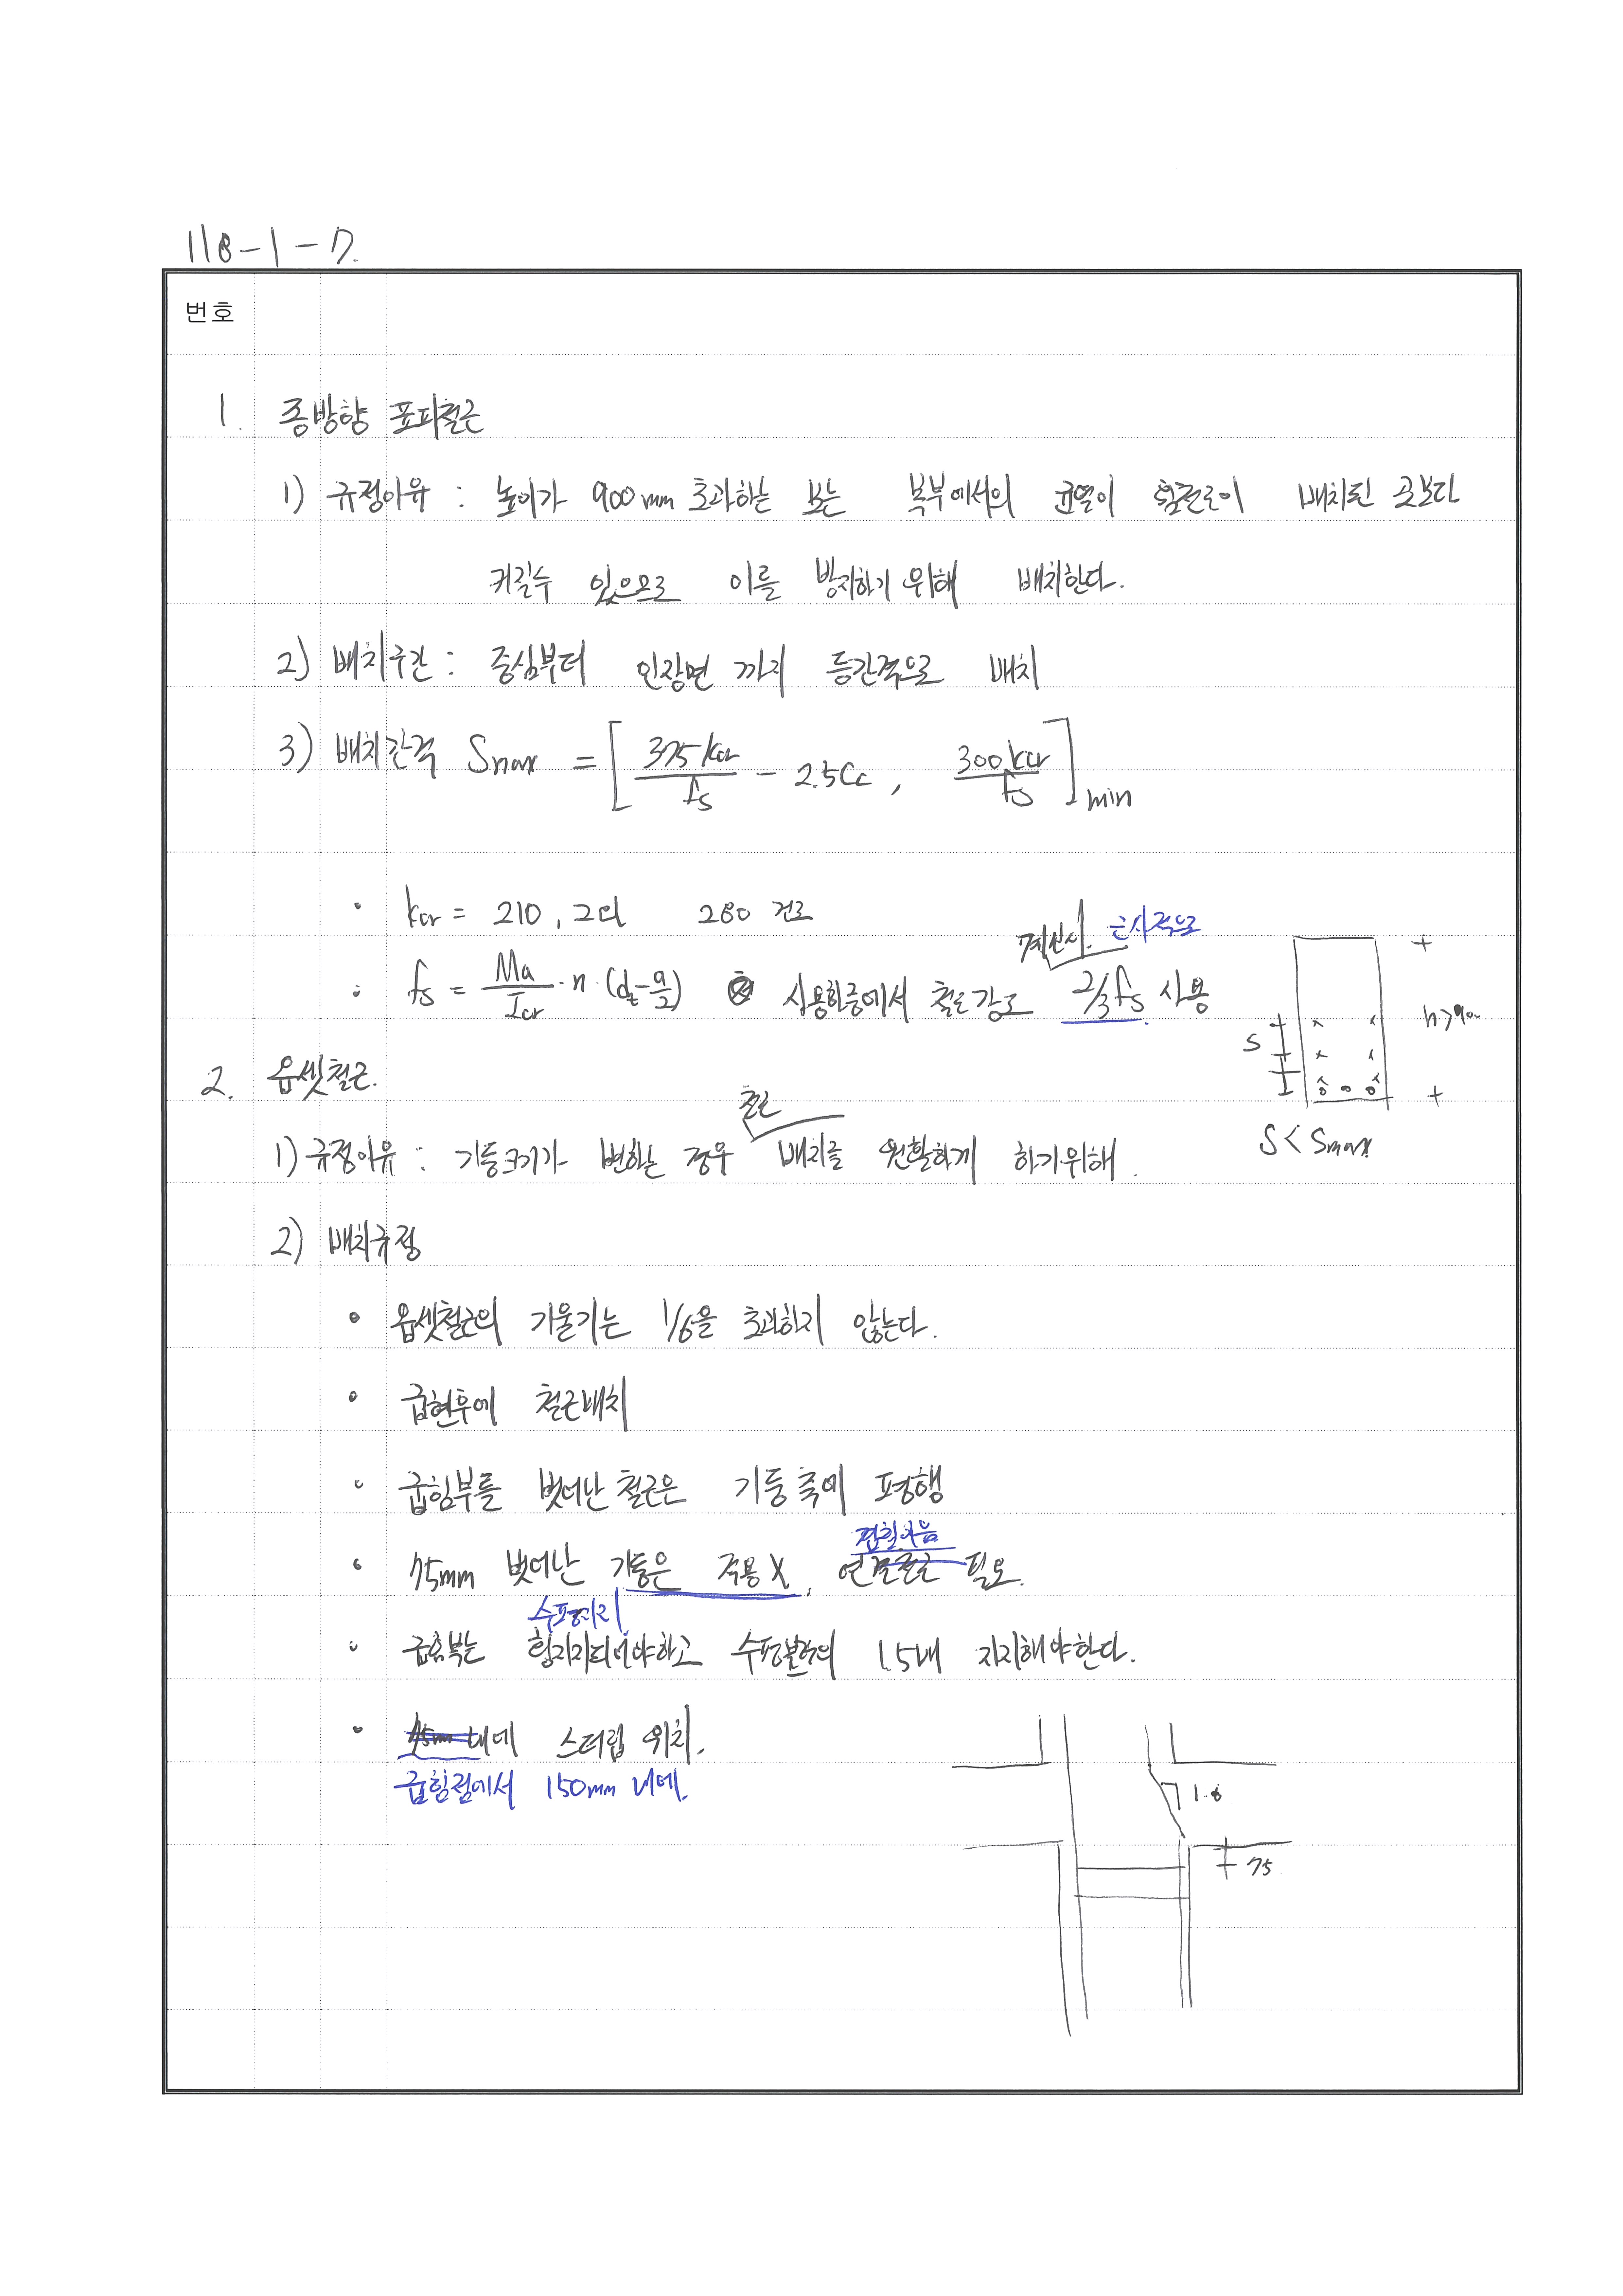 118-1-7.
번호
1. 종방향 표피철근
1) 규정이유 : 높이가 900mm 초과하는 보는 복부에서의 균열이 휨철근이 배치된 곳보다
커질수 있으므로 이를 방지하기 위해 배치한다.
2) 배치구간 : 중심부터 인장면 까지 등간격으로 배치
3) 배치간격 Smax = [ 375 kcr / fs - 2.5Cc , 300 kcr / fs ] min
· kcr = 210, 그외 280 건조
계산시. 근사적으로
· fs = Ma / Icr · n · (dt - a/2) 사용하중에서 철근강도 2/3 fs 사용
S h>900
S < Smax
2. 옵셋철근.
철근
1) 규정이유 : 기둥크기가 변하는 경우 배치를 원활하게 하기위해.
2) 배치규정
· 옵셋철근의 기울기는 1/6을 초과하지 않는다.
· 굽힌후에 철근배치
· 굽힘부를 벗어난 철근은 기둥 축에 평행
겹침이음
· 75mm 벗어난 기둥은 적용 X, 필요.
수평지지
· 굽힘부는 횡지지되어야하고 수평분력의 1.5배 지지해야한다.
· 75mm 내에 스터럽 위치.
굽힘점에서 150mm 내에.
1.6
75